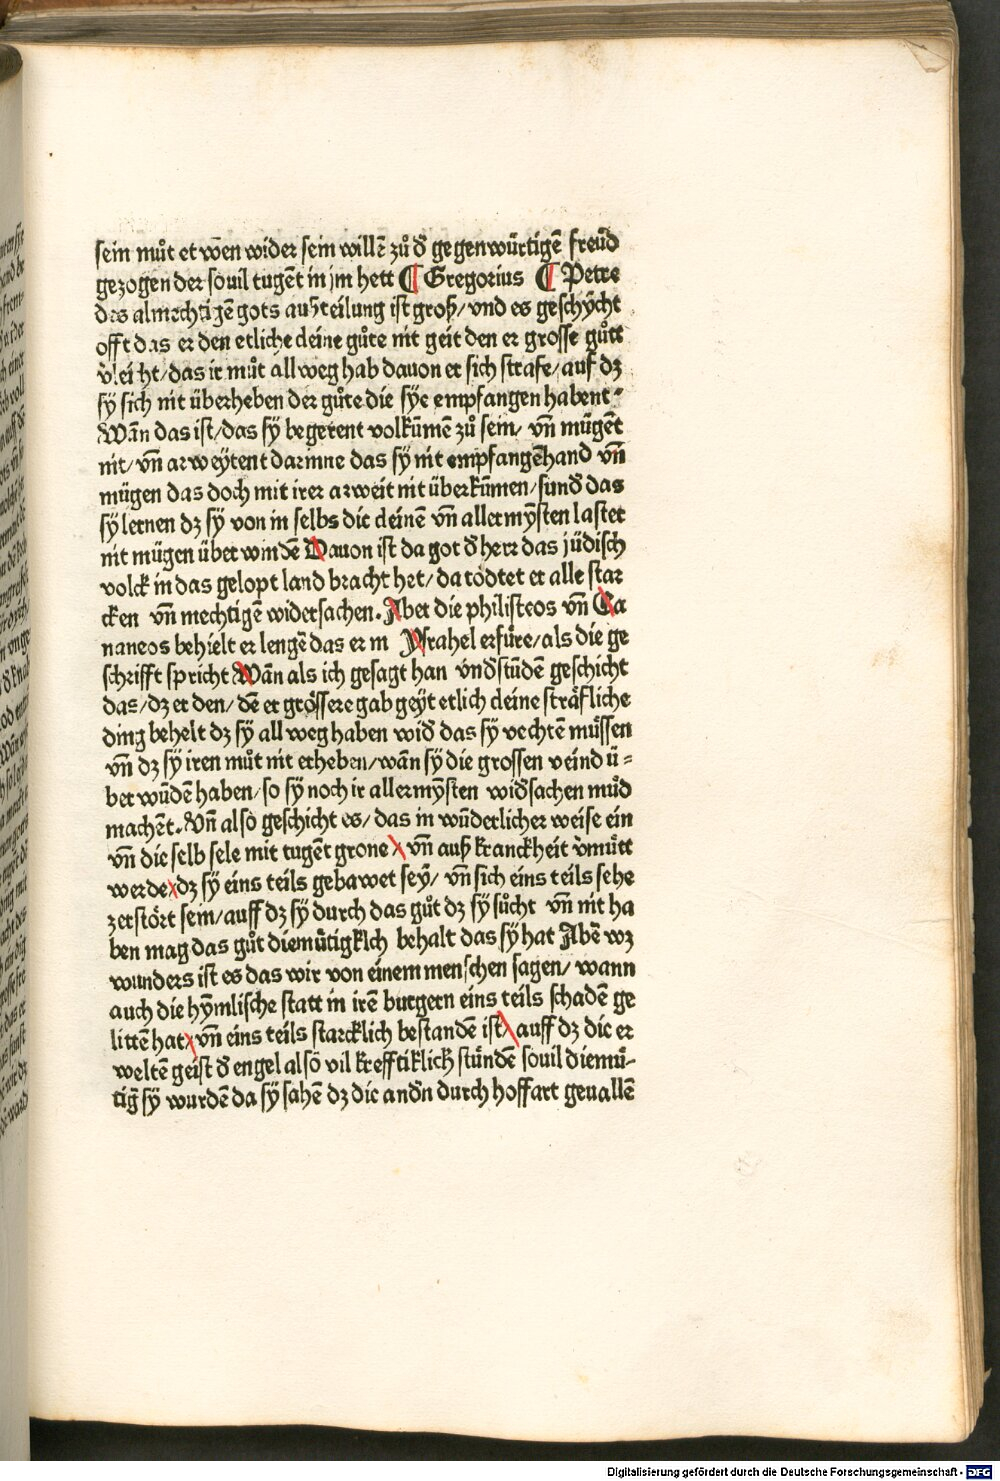 sein můt et wen wider sein willē zů d̄ gegenwürtigē freūd
gezogen der souil tugēt in jm hett ¶ Gregorius ¶ Petre
des almechtigē gots außteilung ist groß/ vnd es geschÿcht
offt das er den etlichē deine gůte nit geit den er grosse gůtt
v̄leiht/ das ir můt allweg hab dauon er sich strafe/ auf dz
sÿ sich nit überheben der gůte die sÿe empfangen habent
Wān das ist/ das sÿ begerent volkūmē zů sein/ vn̄ mügēt
nit/ vn̄ arweÿtent darinne das sÿ nit empfangē hand vn̄
mügen das doch mit irer arweit nit überkūmen/ sund̄ das
sÿ lernen dz sÿ von in selbs die deinē vn̄ allermȳsten laster
nit mügen über windē Dauon ist da got d̄ herr das jüdisch
volck in das gelopt land bracht het/ da tödtet er alle star
cken vn̄ mechtigē widersachen. Aber die philisteos vn̄ Ca
naneos behielt er lengē das er in Ysrahel erfüre/ als die ge
schrifft spricht Wān als ich gesagt han vnd̄stūdē geschicht
das/ dz er den/ dē er grössere gab geÿt etlich deine sträfliche
ding behelt dz sÿ allweg haben wid̄ das sÿ vechtē müssen
vn̄ dz sÿ iren můt nit erheben/ wān sÿ die grossen veind ü-
ber wūdē haben/ so sÿ noch ir allermȳsten wid̄sachen můd
machēt. Vn̄ also geschicht es/ das in wūderlicher weise ein
vn̄ die selb sele mit tugēt grone/ vn̄ auß kranckheit v̄mütt
werde/ dz sÿ eins teils gebawet seÿ/ vn̄ sich eins teils sehe
zerstört sein/ auff dz sÿ durch das gůt dz sÿ sůcht vn̄ nit ha
ben mag das gůt diemütigklich behalt das sÿ hat Abē wz
wunders ist es das wir von einem menschen sagen/ wann
auch die hȳmlische statt in irē burgern eins teils schadē ge
littē hat/ vn̄ eins teils starcklich bestandē ist/ auff dz die er
weltē geist d̄ engel also vil krefftiklich stündē souil diemü-
tiḡ sÿ wurdē da sÿ sahē dz die andn̄ durch hoffart geuallē
Digitalisierung gefördert durch die Deutsche Forschungsgemeinschaft - DFG